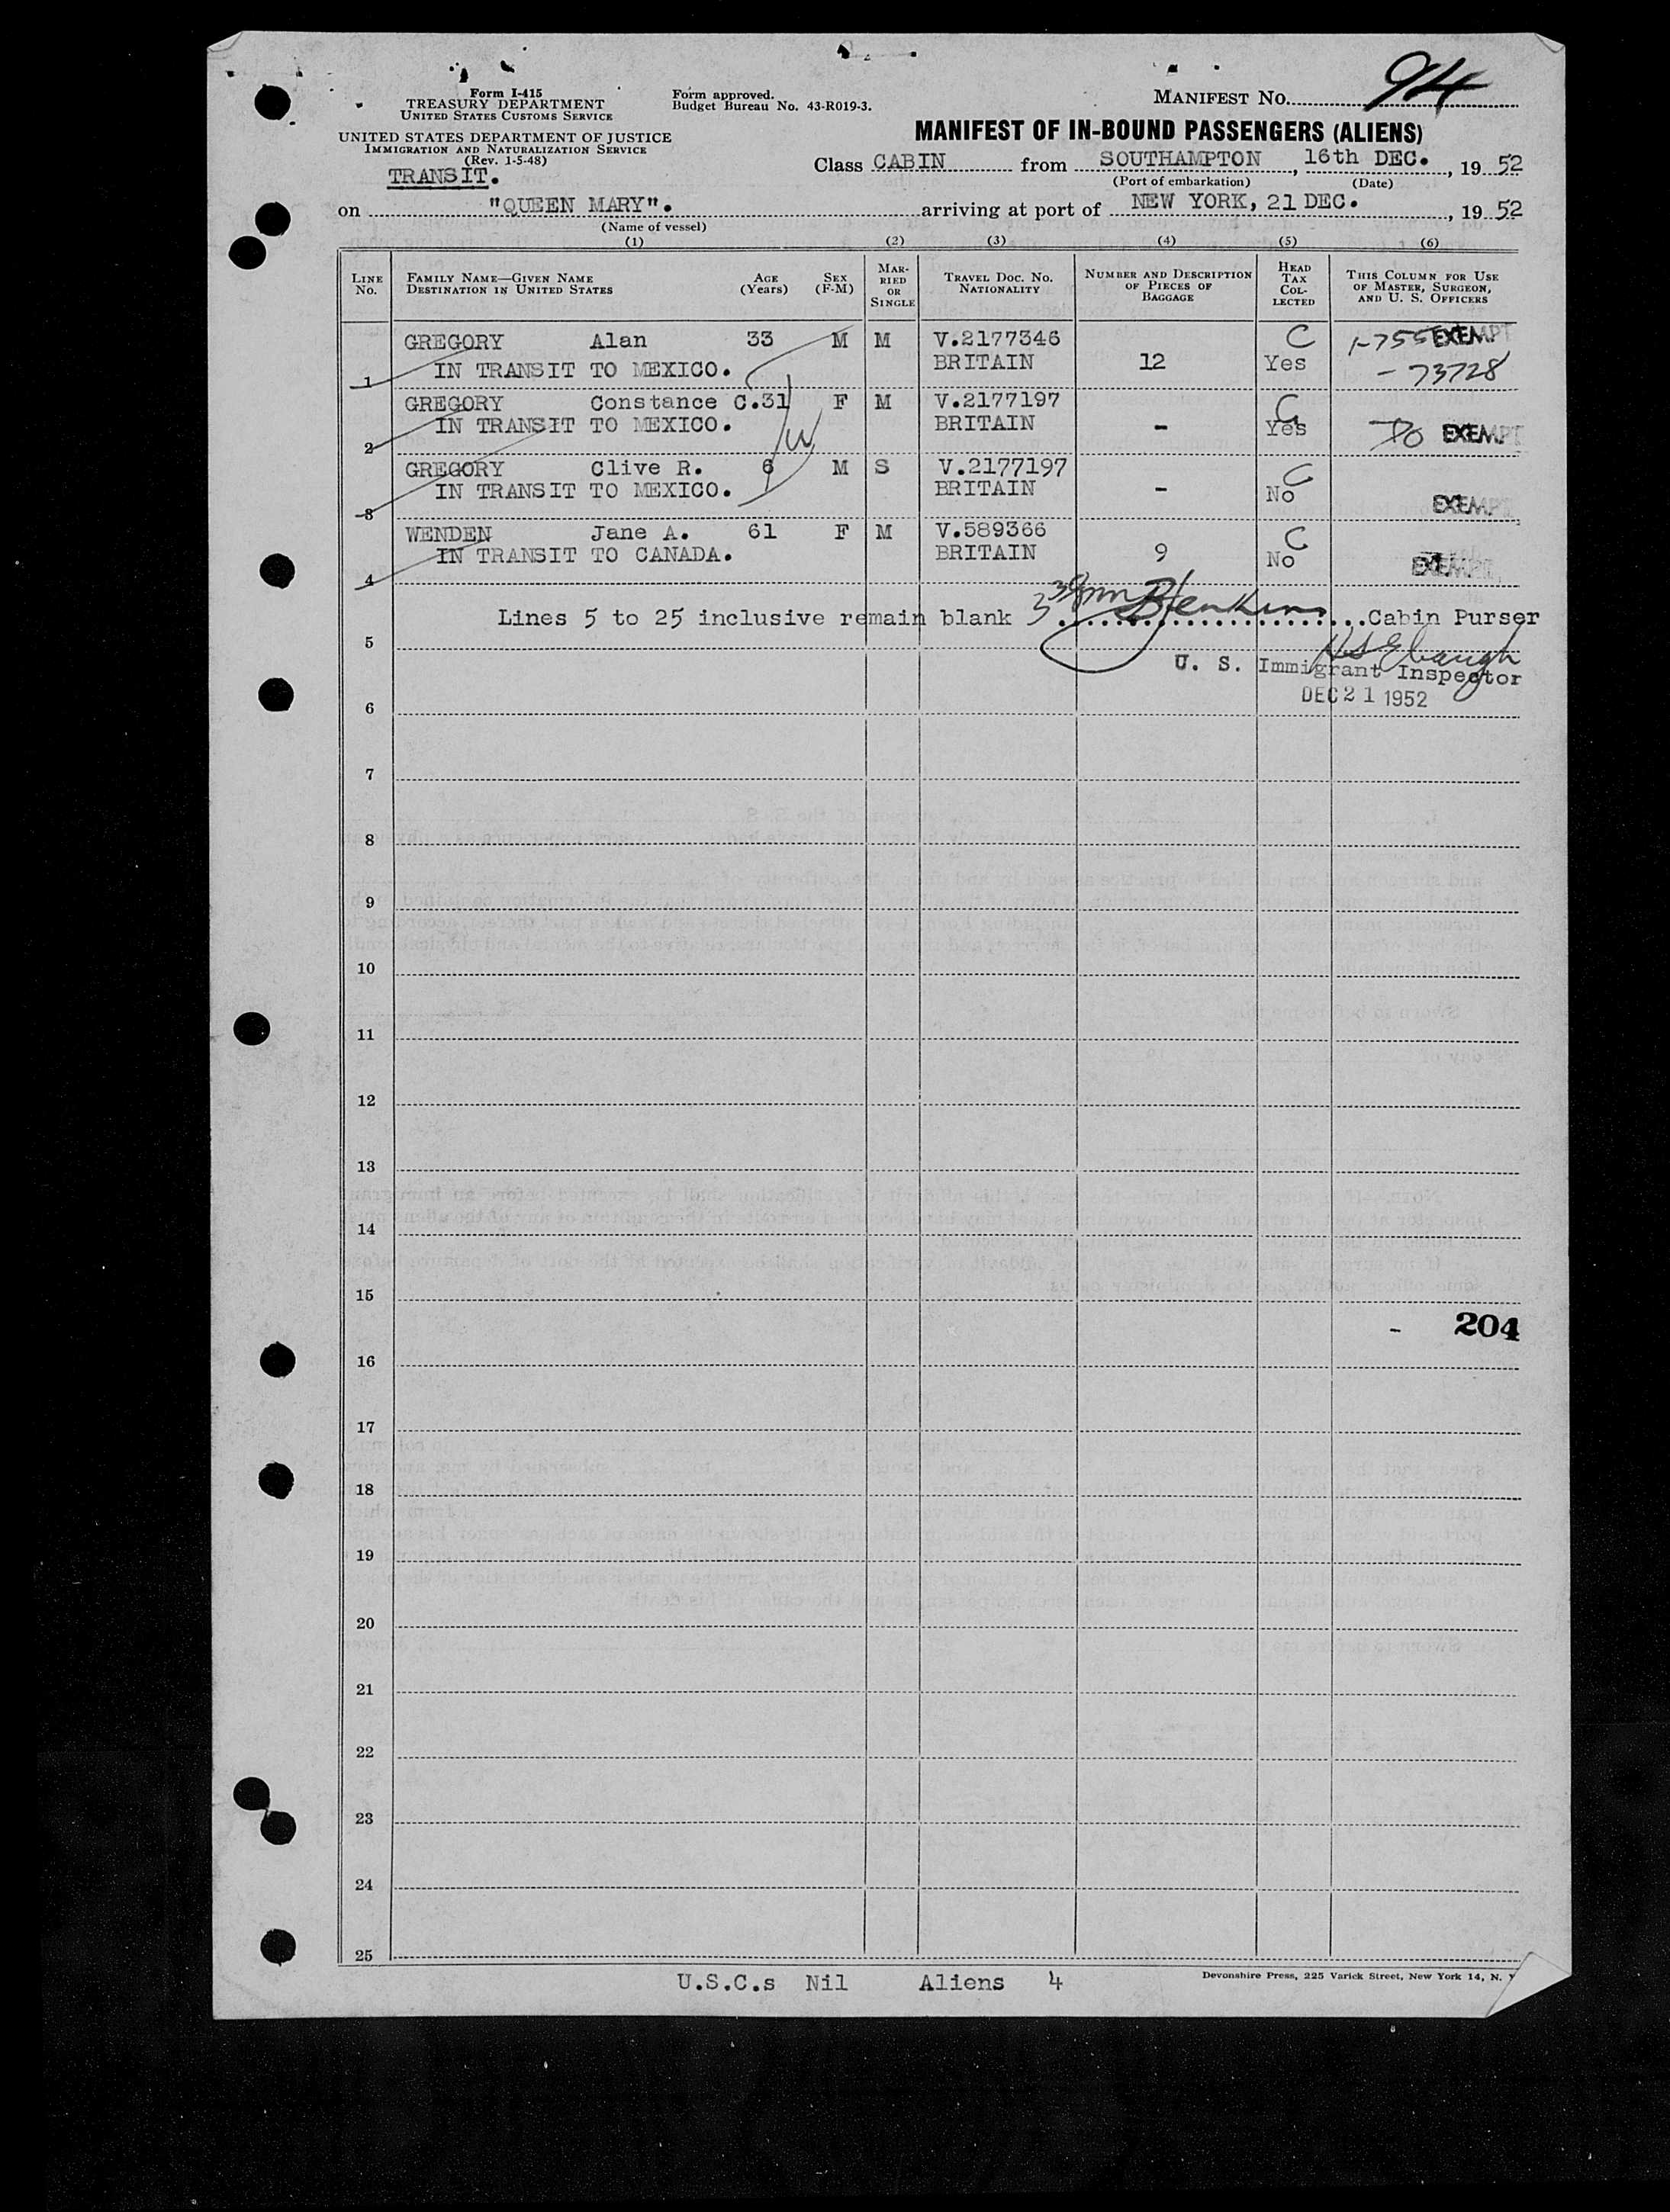 Form I-415
TREASURY DEPARTMENT
UNITED STATES CUSTOMS SERVICE
UNITED STATES DEPARTMENT OF JUSTICE
IMMIGRATION AND NATURALIZATION SERVICE
(Rev. 1-5-48)
TRANSIT.
Form approved.
Budget Bureau No. 43-R019-3.
MANIFEST NO. 94
MANIFEST OF IN-BOUND PASSENGERS (ALIENS)
Class CABIN from SOUTHAMPTON, 16th DEC., 1952
(Port of embarkation) (Date)
on "QUEEN MARY". arriving at port of NEW YORK, 21 DEC., 1952
(Name of vessel)
(1) (2) (3) (4) (5) (6)
LINE NO. FAMILY NAME—GIVEN NAME DESTINATION IN UNITED STATES AGE (Years) SEX (F-M) MARRIED OR SINGLE TRAVEL DOC. NO. NATIONALITY NUMBER AND DESCRIPTION OF PIECES OF BAGGAGE HEAD TAX COLLECTED THIS COLUMN FOR USE OF MASTER, SURGEON, AND U. S. OFFICERS
GREGORY Alan 33 M M V.2177346 C 1-755 EXEMPT
1 IN TRANSIT TO MEXICO. BRITAIN 12 Yes - 73728
GREGORY Constance C. 31 F M V.2177197 C
2 IN TRANSIT TO MEXICO. BRITAIN - Yes Do EXEMPT
GREGORY Clive R. 6 M S V.2177197 C
3 IN TRANSIT TO MEXICO. BRITAIN - No EXEMPT
WENDEN Jane A. 61 F M V.589366 C
4 IN TRANSIT TO CANADA. BRITAIN 9 No EXEMPT
Lines 5 to 25 inclusive remain blank Cabin Purser
5
U. S. Immigrant Inspector
DEC 21 1952
6
7
8
9
10
11
12
13
14
15
- 204
16
17
18
19
20
21
22
23
24
25
U.S.C.s Nil Aliens 4
Devonshire Press, 225 Varick Street, New York 14, N.